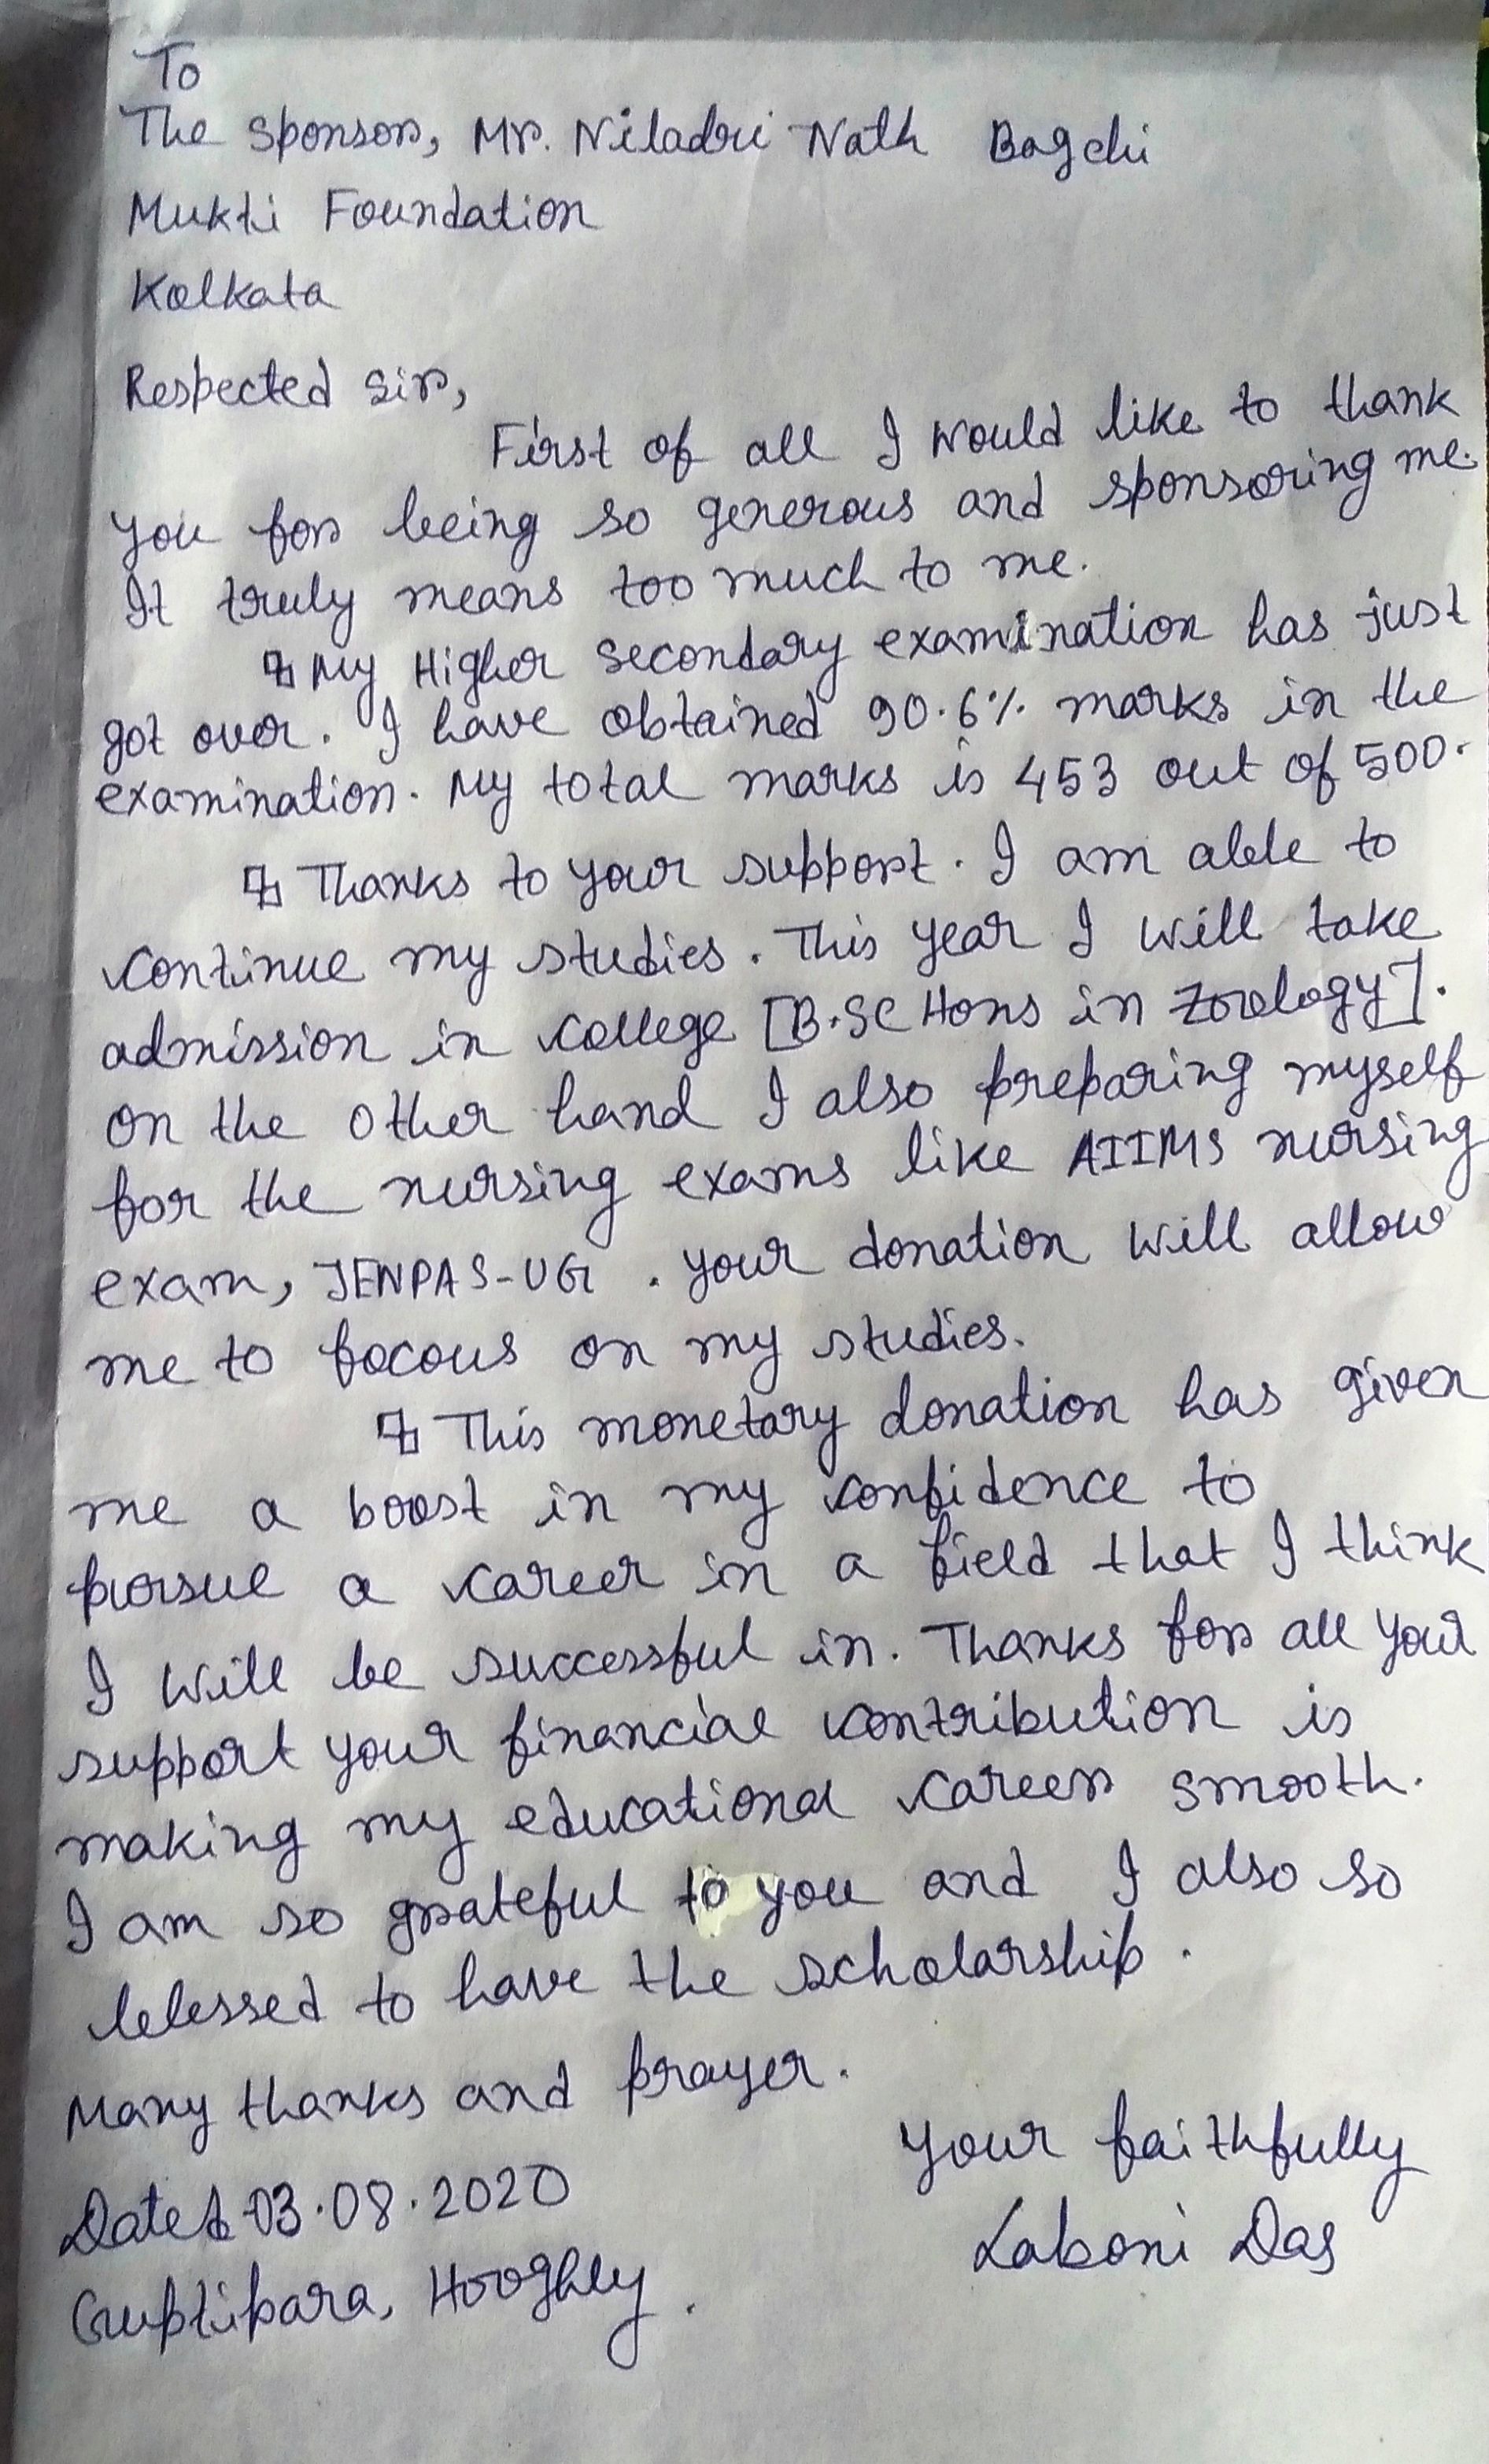 To
The Sponsor, Mr. Niladri Nath Bagchi
Mukti Foundation
Kolkata
Respected Sir,
First of all I would like to thank
you for being so generous and sponsoring me.
It truly means too much to me.
My Higher Secondary examination has just
got over. I have obtained 90.6% marks in the
examination. My total marks is 453 out of 500.
Thanks to your support. I am able to
continue my studies. This year I will take
admission in college [B.SC Hons in Zoology].
on the other hand I also preparing myself
for the nursing exams like AIIMS nursing
exam, JENPAS-UG. your donation will allow
me to focous on my studies.
This monetary donation has given
me a boost in my confidence to
pursue a career in a field that I think
I will be successful in. Thanks for all your
support your financial contribution is
making my educational career smooth.
I am so grateful to you and I also so
blessed to have the scholarship.
Many thanks and prayer.
Your faithfully
Dated-03.08.2020
Laboni Das
Guptipara, Hooghly.